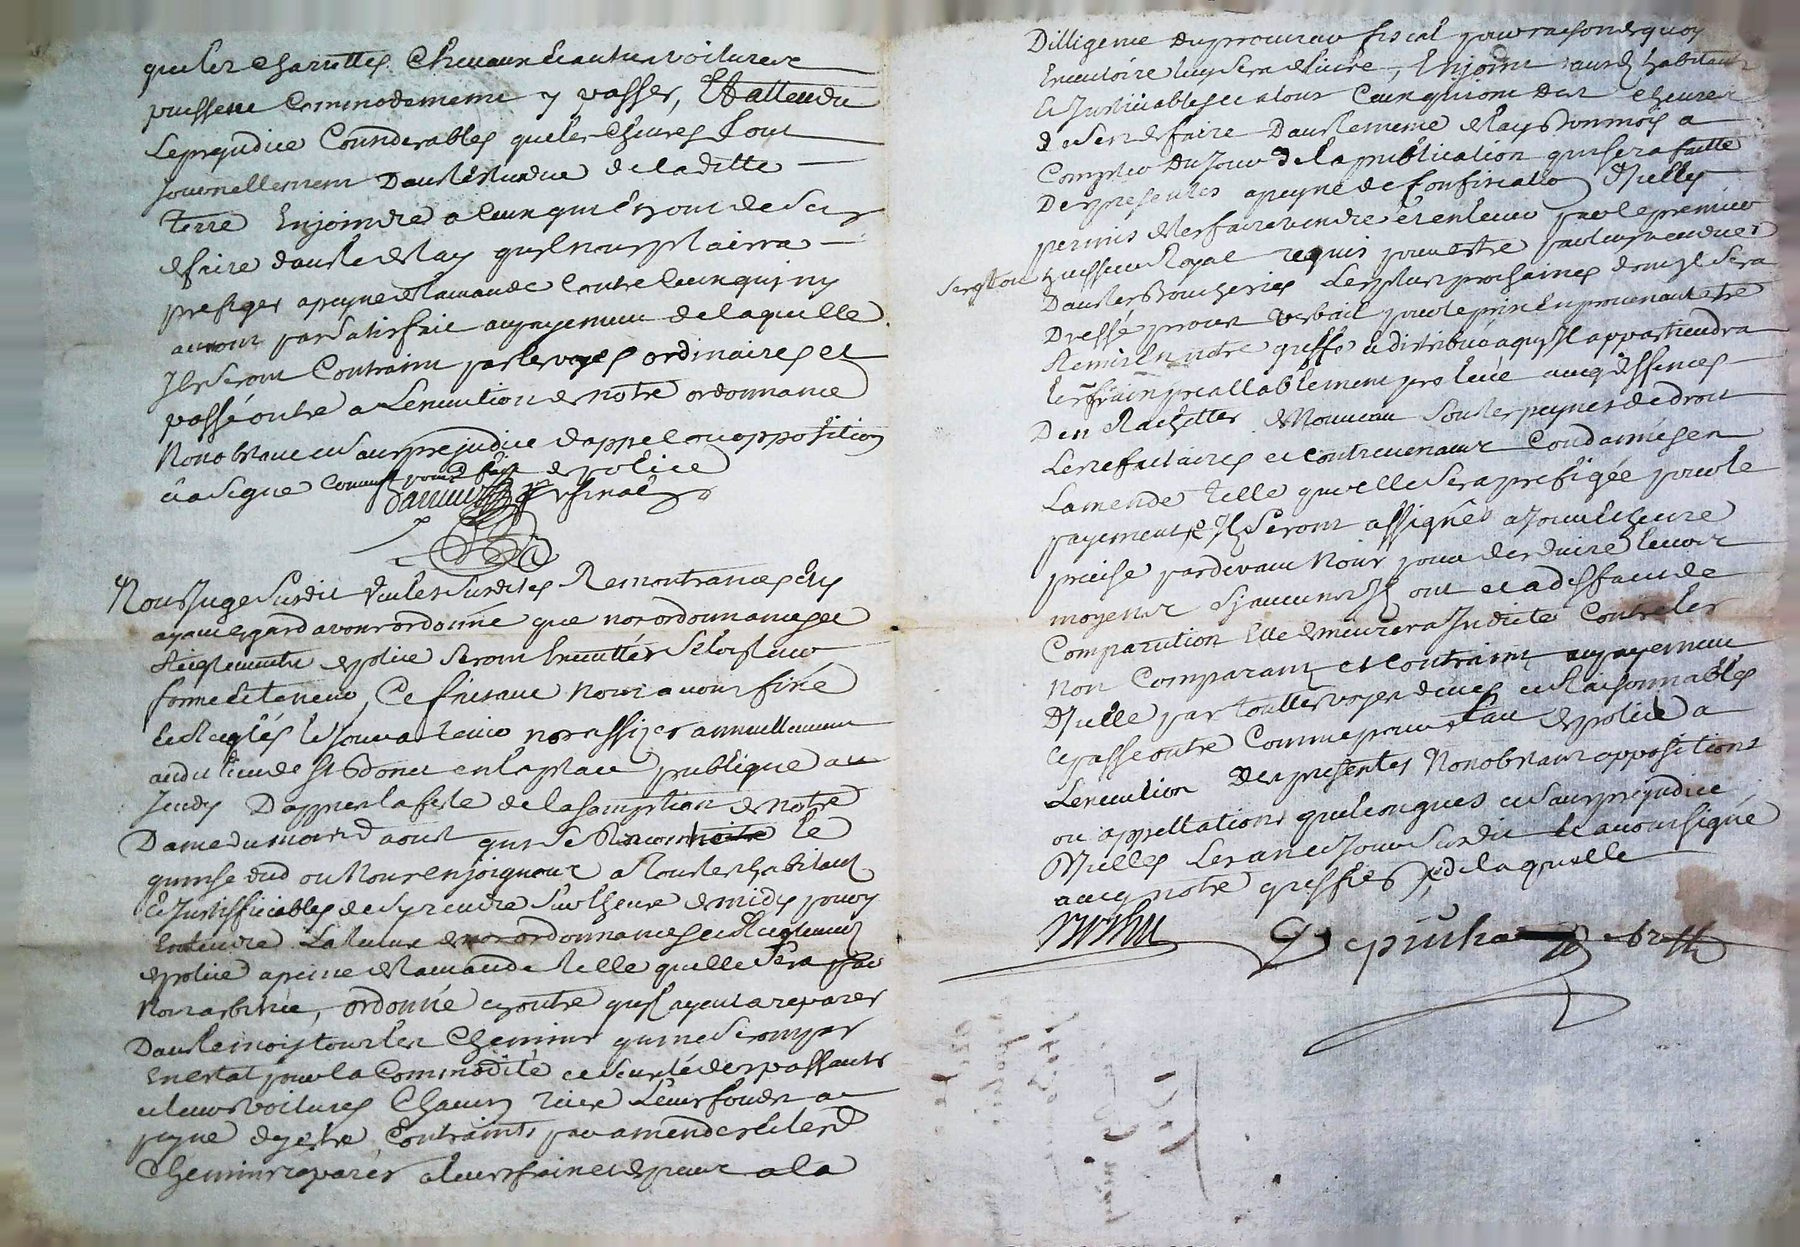 que les charettes chevaux et autres voitures
puissent commodement y passer, Et attendu
Le prejudice Considerables que les chevres font
journellement dans l'étendue de la ditte
terre Enjoindre a ceux qui en ont de s'en
defaire dans le delay quil nous plairra
prefiger a peyne de lamande contre ceux qui ny
auront pas satisfait au payement de laquelle
Ils seront Contraint par les voyes ordinaires et
passé outre a Lexecution de notre ordonnance
Nonobstant et sans prejudice d'appel ou opposition
et a signé comme pour fait de police
fiscal
Nous Juge susdit sur les susdites Remontrances et y
ayant egard avons ordonné que nos ordonnances et
Reiglements de police seront Executtés selon leur
forme et teneur, Ce faisant Nous avons fixé
et Reglés le jour a tenir nos assizes annuellement
au lieu de St Donat en la place publique au
Jeudy D'appres la feste de lasomption de notre
Dame du mois d'aout qui se Rencontre le
quinse dud ou Nous enjoignons a tous les habitants
et Justissiables de sy rendre sur lheure de midy pour y
Entendre La lecture de nos ordonnances et Reglements
de police a peine de lamande telle quelle sera par
Nous arbitrée, ordonné en outre quil ayent a reparer
Dans le mois tous les Chemins qui ne seront pas
En estat pour la Commodité et seureté des passants
et leurs voitures Chacun riere Leurs fonds a
peyne d'y etre Contraints par amende et lesd
Chemins reparés a leurs frais et depans a la
Dilligence du procureur fiscal pour raison de quoy
Executoire luy sera delivré, Enjoint aux d habitants
et Justiciables et a tous Ceux qui ont des chevres
de sen defaire Dans le meme delay d'un mois a
Compter du Jour de la publication qui sera faitte
Des presentes a peyne de Confiscation d'icelles
permis de les faire vendre et enlever par le premier
sergt ou huissier Royal requis pour estre par luy vendues
Dans les Boucheries Les plus prochaines dont il sera
Dressé procès verbail pour le prix en provenant etre
Remis en notre greffe et distribué a qui il appartiendra
les frais preallablement prelevé avec deffences
Den Rachetter de Nouveau sous les peynes de droit
Les refractaires et contrevenants Condamnés en
Lamende telle quelle sera prefigée pour le
payement Ils seront assignés a jour et heure
precise pardevant Nous pour deduire leurs
moyens sy aucuns Ils ont et a deffaut de
Comparution Elle demeurera Indicte Contre les
non Comparants et contraints au payement
d'icelle par touttes voyes deues et Raisonnables
et passé outre Comme pour fait de police a
Lexecution des presentes Nonobstant oppositions
ou appellations quelconques et sans prejudice
d'icelles Les an et jour susdit et avons signé
avec notre greffier